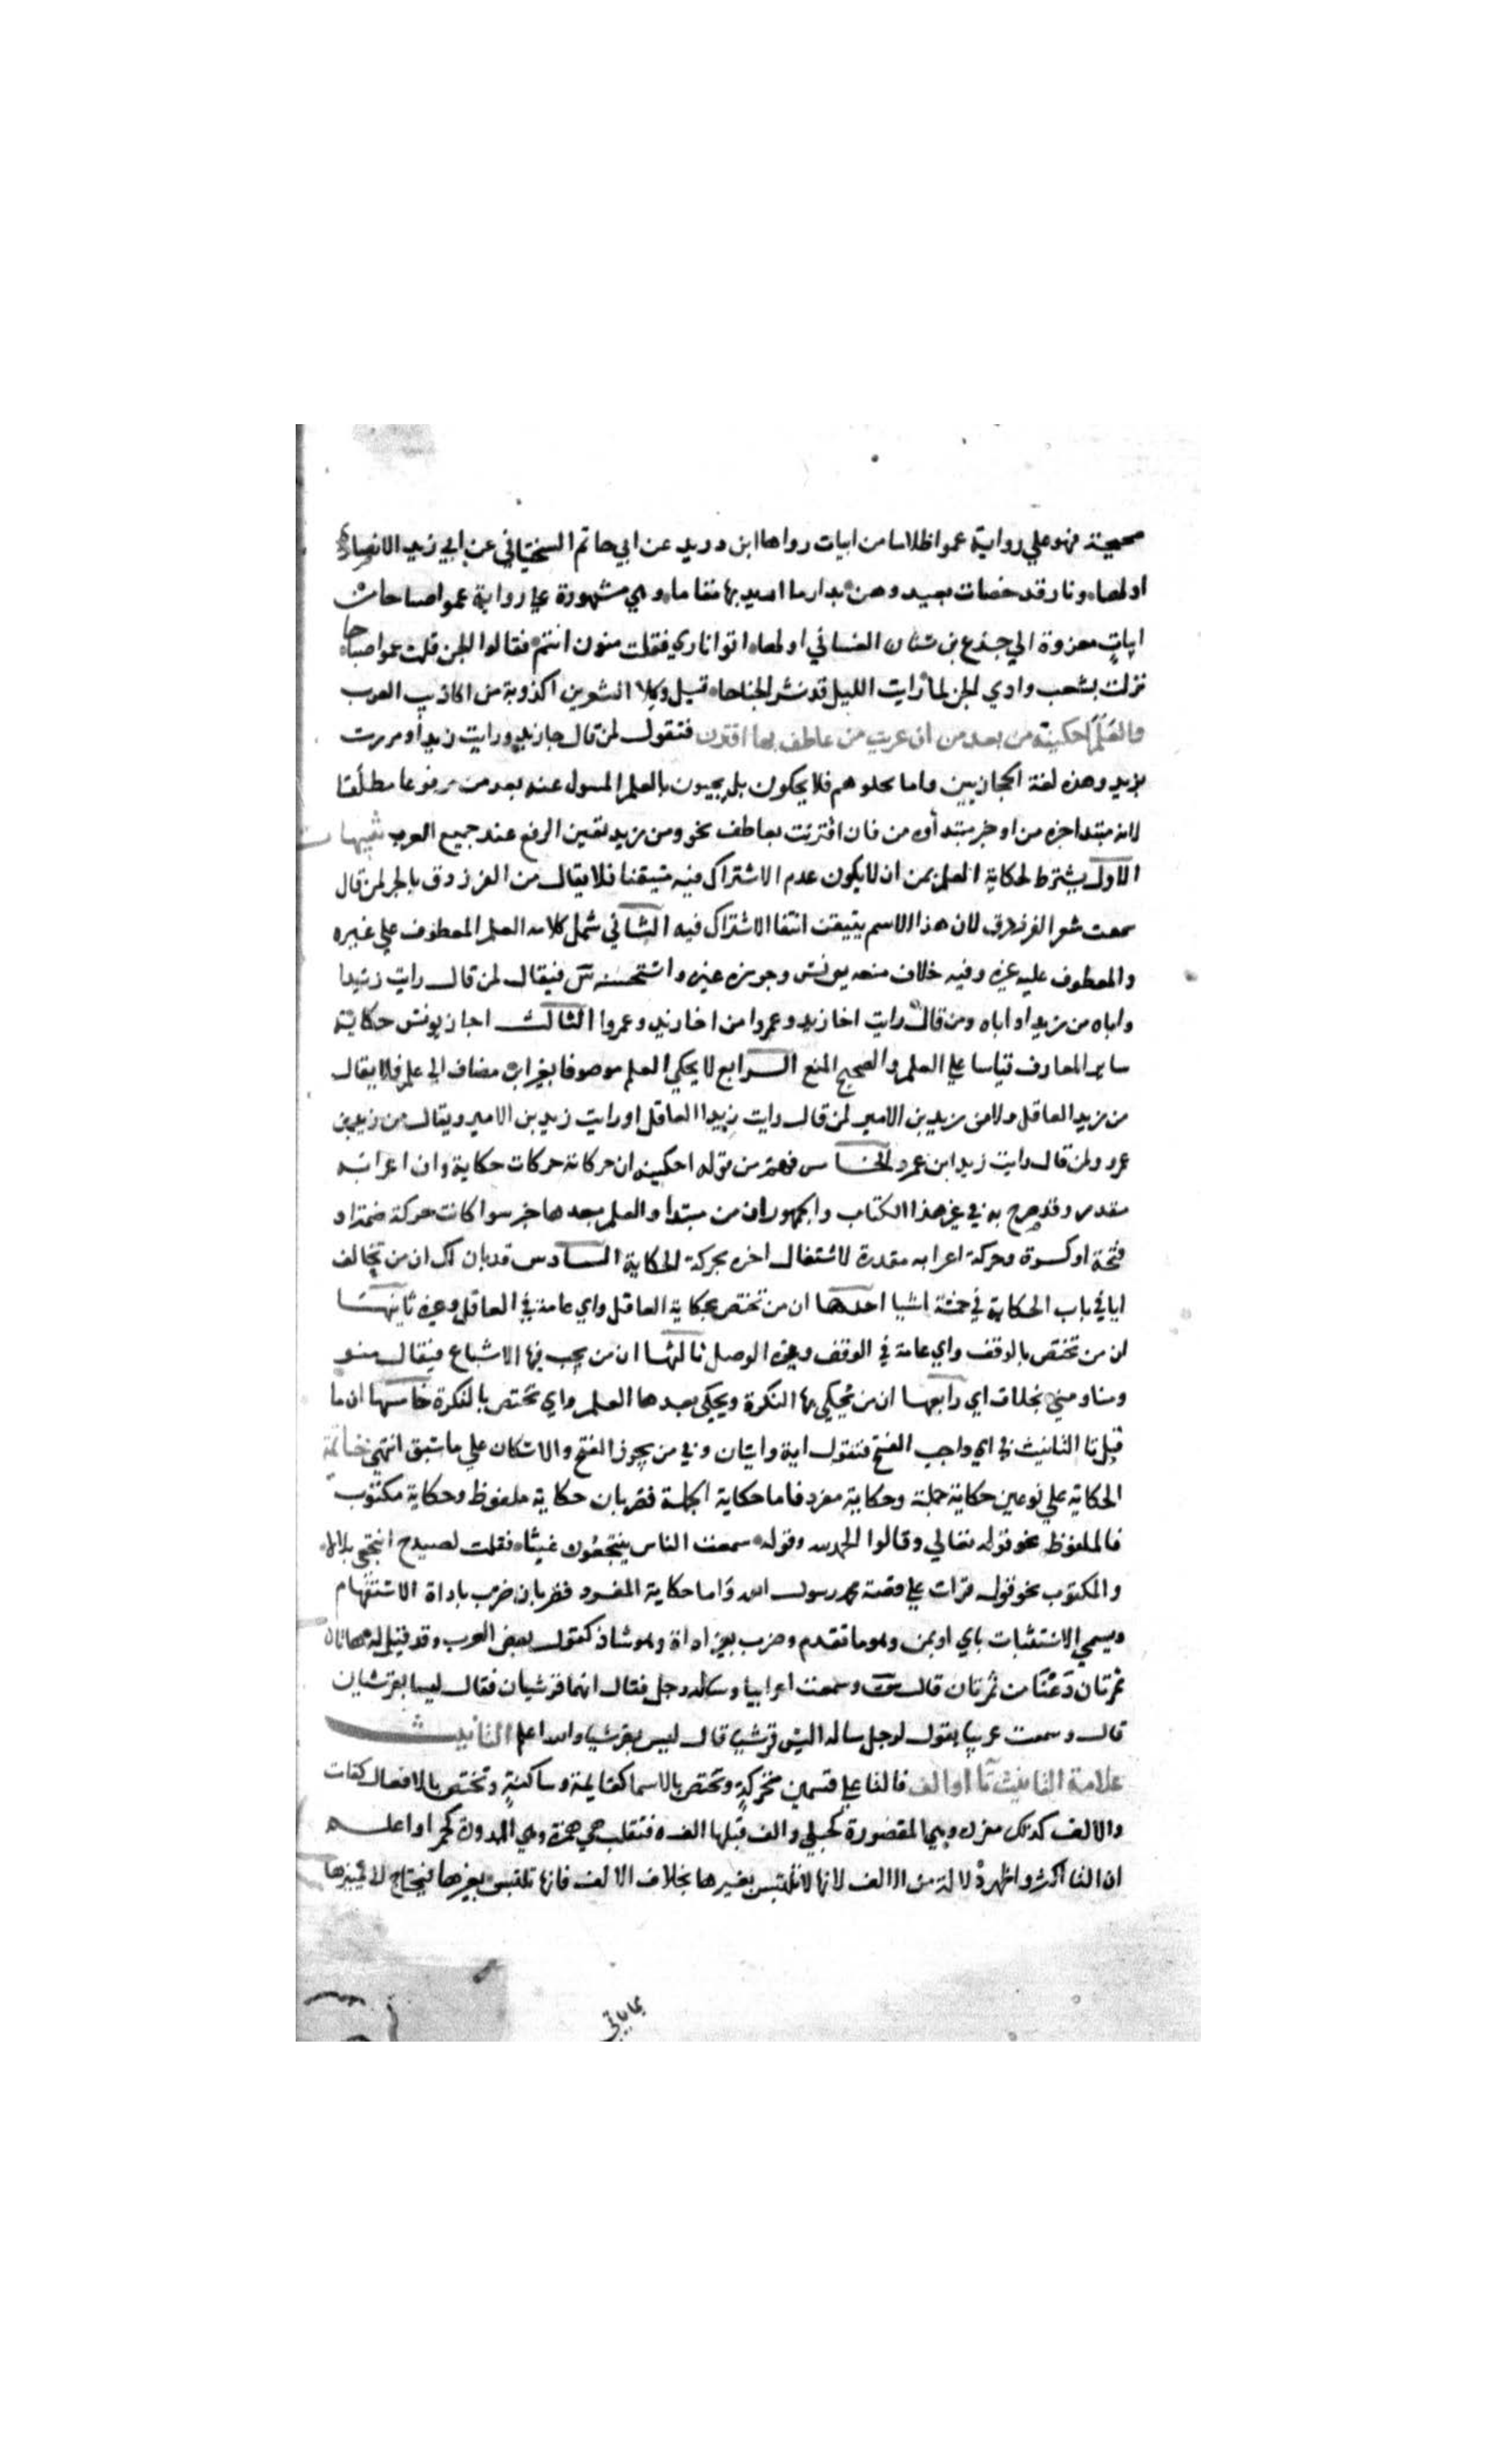 صحيحة فهو علي رواية عموا ظلاما من ابيات رواها ابن دريد عن ابي حاتم السختياني عن ابي زيد الانصاري
اولها ونار قد حضات بعيد وهن بدار ما اريد بها مقاما وهي مشهورة علي رواية عموا صباحا من
ابيات معزوة الي جذع بن سنان الغساني اولها اتوا ناري فقلت منون انتم فقالوا الجن قلت عموا صباحا
نزلت بشعب وادي الجن لما رايت الليل قد نشر الجناحا قيل وكلا الشعرين اكذوبة من اكاذيب العرب
والعلم احكينه من بعد من ان عريت من عاطف بها اقترن فتقول لمن قال جا زيد ورايت زيدا ومررت
بزيد وهذه لغة الحجازيين واما غيرهم فلا يحكون بل يجيون بالعلم المسول عنه بعد من مرفوعا مطلقا
لانه مبتدا خبره من او خبر مبتداه من فان اقترنت بعاطف نحو ومن زيد تعين الرفع عند جميع العرب تنبيهات
الاول يشترط لحكاية العلم بمن ان لا يكون عدم الاشتراك فيه متيقنا فلا يقال من الفرزدق بالجر لمن قال
سمعت شعر الفرزدق لان هذا الاسم يتيقن انتفا الاشتراك فيه الثاني شمل كلامه العلم المعطوف علي غيره
والمعطوف عليه غيره وفيه خلاف منعه يونس وجوزه غيره واستحسنه س فيقال لمن قال رايت زيدا
واباه من زيدا واباه ومن قال رايت اخا زيد وعمروا من اخا زيد وعمروا الثالث اجاز يونس حكاية
ساير المعارف قياسا علي العلم والصحيح المنع الرابع لا يحكي العلم موصوفا بغير ابن مضاف الي علم فلا يقال
من زيد العاقل ولا من زيد بن الامير لمن قال رايت زيدا العاقل او رايت زيد بن الامير ويقال من زيد بن
عمرو لمن قال رايت زيد ابن عمرو الخامس فهم من قوله احكينه ان حركاته حركات حكاية وان اعرابه
مقدر وقد صرح به في غير هذا الكتاب والجمهور ان من مبتدا والعلم بعدها خبر سوا كانت حركته ضمة او
فتحة او كسرة وحركة اعرابه مقدرة لاشتغال اخره بحركة الحكاية السادس قد بان لك ان من تخالف
ايا في باب الحكاية في خمسة اشيا احدها ان من تختص بحكاية العاقل واي عامة في العاقل وغيره ثانيها
ان من تختص بالوقف واي عامة في الوقف وغيره الوصل ثالثها ان من يجب فيها الاشباع فيقال منو
ومنا ومني بخلاف اي رابعها ان من يحكي بها النكرة ويحكي بعدها العلم واي تختص بالنكرة خامسها ان ما
قبل تا التانيث في اي واجب الفتح فتقول اية وايتان وفي من يجوز الفتح والاسكان علي ما سبق انتهي خاتمة
الحكاية علي نوعين حكاية جملة وحكاية مفرد فاما حكاية الجملة فضربان حكاية ملفوظ وحكاية مكتوب
فالملفوظ نحو قوله تعالي وقالوا الحمد لله وقوله سمعت الناس ينتجعون غيثا فقلت لصيدح انتجعي بلالا
والمكتوب نحو قوله قرات علي فصه محمد رسول الله واما حكاية المفرد فضربان ضرب باداة الاستفهام
ويسمي الاستثبات باي او بمن وهو ما تقدم وضرب بغير اداة وهو شاذ كقول بعض العرب وقد قيل له هاتان
تمرتان دعنا من تمرتان قال س وسمعت اعرابيا وساله رجل فقال انهما قرشيان فقال ليسا بقرشيان
قال وسمعت عربيا يقول لرجل ساله اليس قرشيا قال ليس بقرشيا والله اعلم التانيث
علامة التانيث تا او الف فالتا علي قسمين متحركة وتختص بالاسما كقايمة وساكنة وتختص بالافعال كقامت
والالف كذلك مفردة وهي المقصورة كحبلي والف قبلها الف فتقلب هي همزة وهي الممدودة كحمرا واعلم
ان التا اكثر واظهر دلالة من الالف لانها لا تلتبس بغيرها بخلاف الالف فانها تلتبس بغيرها فيحتاج لا تميزها